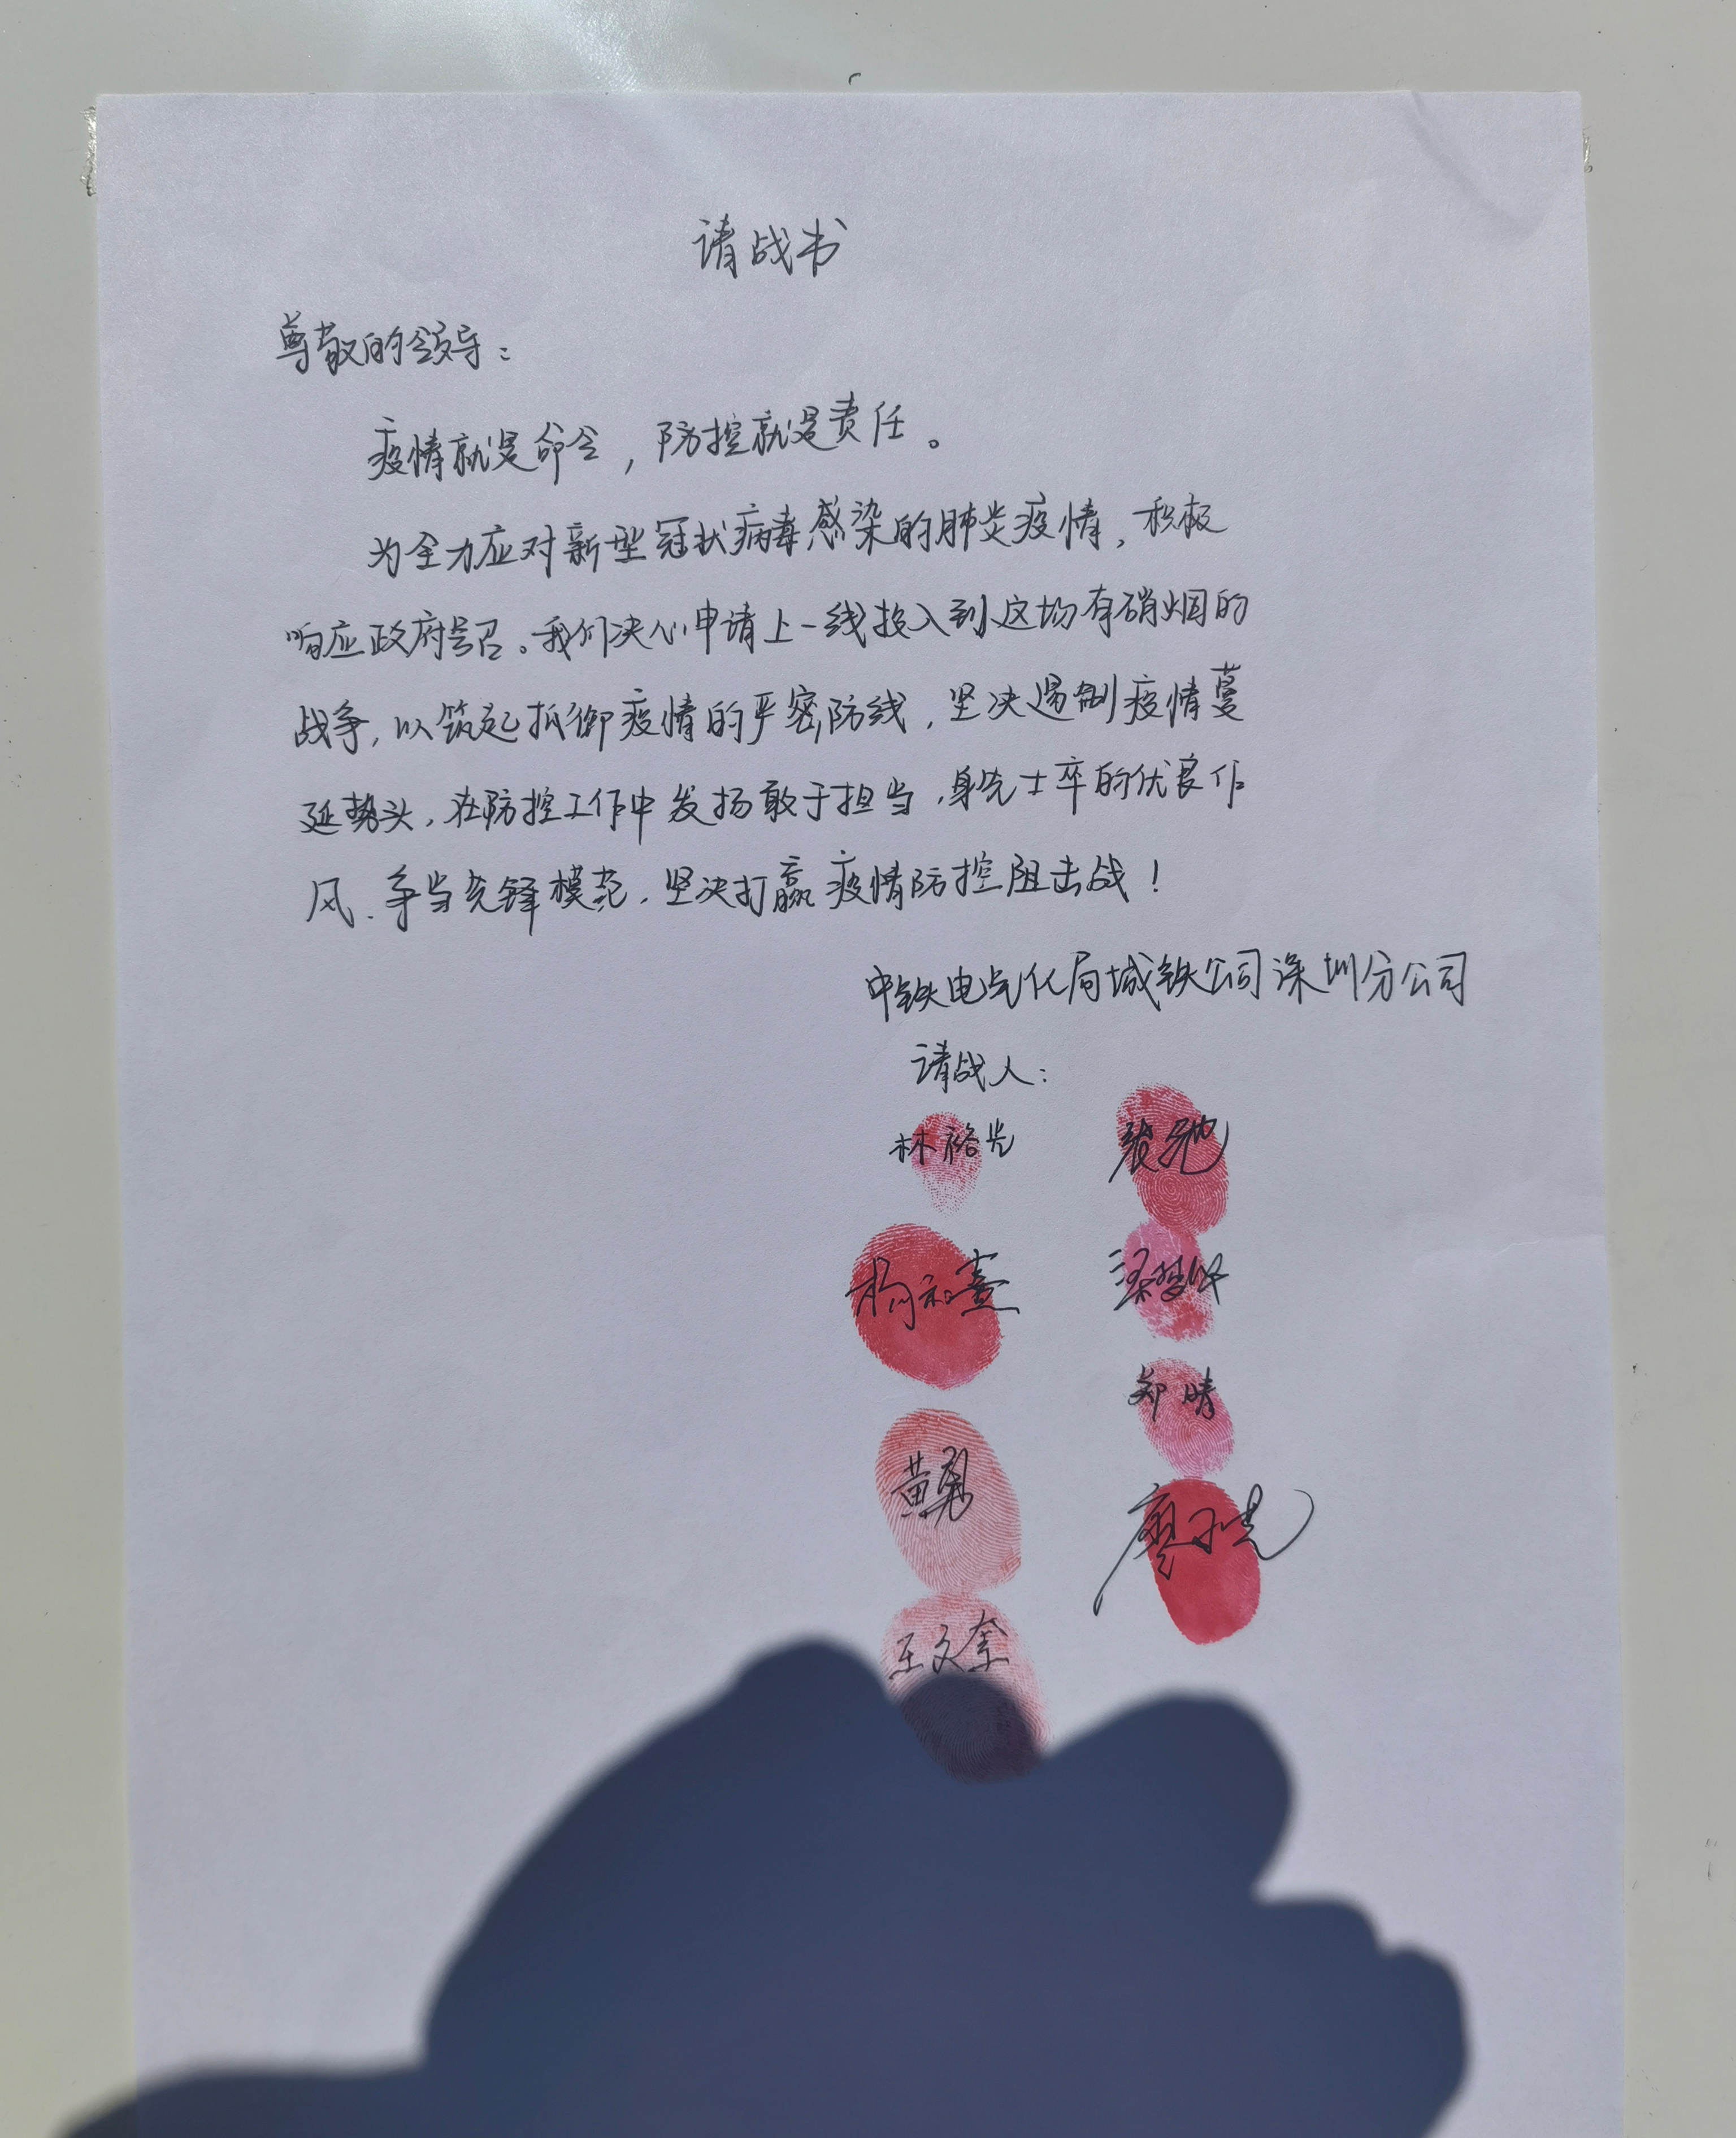 请战书
尊敬的领导：
疫情就是命令，防控就是责任。
为全力应对新型冠状病毒感染的肺炎疫情，积极
响应政府号召。我们决心申请上一线投入到这场有硝烟的
战争，以筑起抵御疫情的严密防线，坚决遏制疫情蔓
延势头，在防控工作中发扬敢于担当，身先士卒的优良作
风、争当先锋模范，坚决打赢疫情防控阻击战！
中铁电气化局城铁公司深圳分公司
请战人：
林裕光
黄勇
王文奎
郑晴